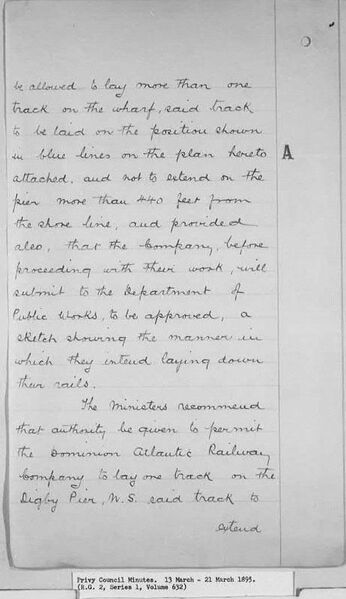 be allowed to lay more than one
track on the wharf, said track
to be laid on the position shown
in blue lines on the plan hereto
attached, and not to extend on the
pier more than 440 feet from
the shore line, and provided
also, that the Company, before
proceeding with their work, will
submit to the Department of
Public Works, to be approved, a
sketch showing the manner in
which they intend laying down
their rails.
The Ministers recommend
that authority be given to permit
the Dominion Atlantic Railway
Company to lay one track on the
Digby Pier, N.S. said track to
extend
A
Privy Council Minutes. 13 March - 21 March 1895.
(R.G. 2, Series 1, Volume 632)